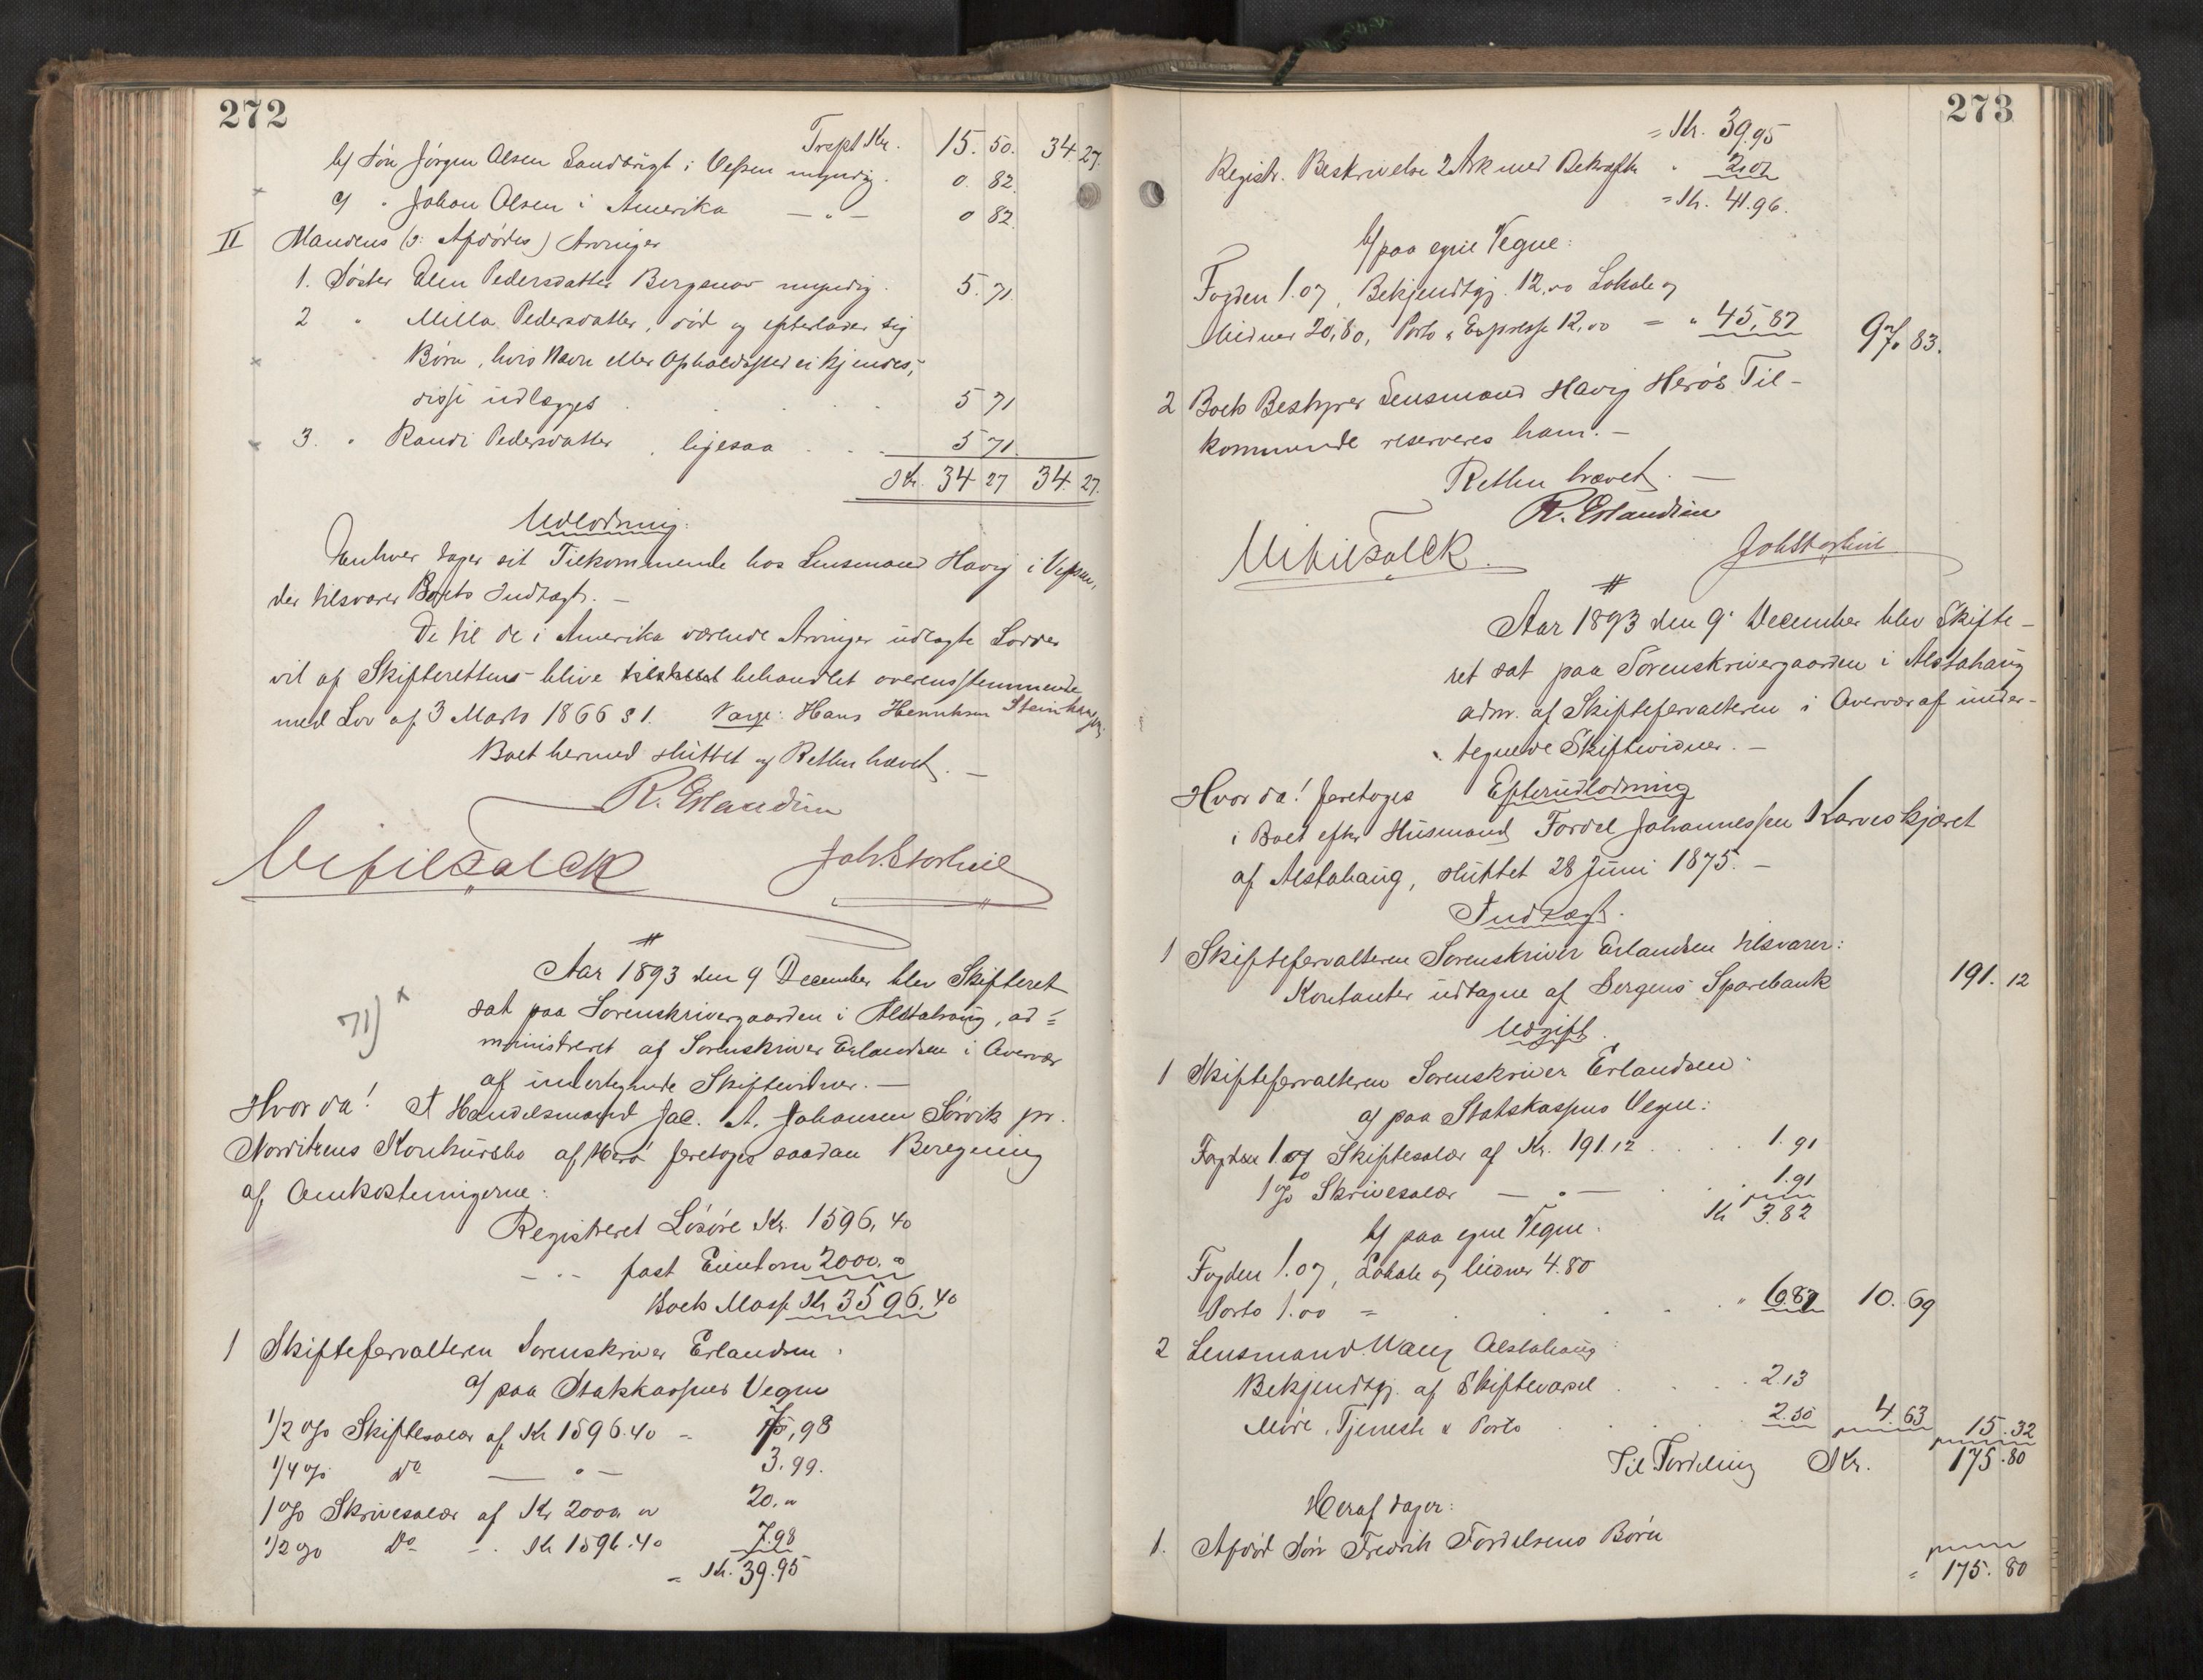 272
Trspt Kr. 15. 50. 34 27.
b/ Søn Jørgen Olsen Sandvigt i Vefsen myndig. 0. 82.
c/ " Johan Olsen i Amerika — " — 0 82.
II Mandens (ɔ: Afdødes) Arvinger
1. Søster Elen Pedersdatter Bergsnov myndig. 5. 71.
2 " Milla Pedersdatter, død og efterlader sig
Børn, hvis Navn eller Opholdssted ei kjendes,
disse udlægges . . . . 5 71
3. " Randi Pedersdatter, ligesaa . . . 5 71.
Kr. 34 27 34. 27.
Udlodning:
Enhver tager sit Tilkommende hos Lensmand Havig i Vefsen,
der tilsvarer Boets Indtægt. —
De til de i Amerika værende Arvinger udlagte Lodder
vil af Skifterettens blive behandlet overensstemmende
med Lov af 3 Marts 1866 § 1. Værge: Hans Henriksen
Boet hermed sluttet og Retten hævet. —
R. Erlandsen
Joh. Storheil
#
71) x
Aar 1893 den 9 December blev Skifteret
sat paa Sorenskrivergaarden i Alstahaug, ad=
ministreret af Sorenskriver Erlandsen i Overvær
af undertegnede Skiftevidner. —
Hvor da! I Handelsmand Jac. A. Johansen Sørvik pr.
Nordvikens Konkursbo af Herø foretoges saadan Beregning
af Omkostningerne:
Registreret Løsøre Kr. 1596, 40
— " — fast Eiendom 2000. "
Boets Masse Kr 3596. 40
1 Skifteforvalteren Sorenskriver Erlandsen:
a/ paa Statskassens Vegne
1/2 % Skiftesalær af Kr 1596.40 = 7,98
1/4 % Do — " — 3.99.
1 % Skrivesalær af Kr 2000 " 20. "
1/2 % Do — " Kr 1596.40 7.98
= Kr. 39.95
273
= Kr. 39.95
Registr. Beskrivelse 2 Ark med Bekræft. " 2.02
= Kr. 41.96.
b/ paa egne Vegne:
Fogden 1.07, Bekjendtgj. 12,00 Lokale og
Vidner 20,80, Porto & Expresse 12,00 = " 45,87 97. 83.
2 Boets Bestyrer Lensmand Havig Herøs Til-
kommende reserveres ham. —
Retten hævet. —
R. Erlandsen
Joh Storheil
#
Aar 1893 den 9. December blev Skifte-
ret sat paa Sorenskrivergaarden i Alstahaug
adm. af Skifteforvalteren i Overvær af under-
tegnede Skiftevidner. —
Hvor da! foretoges Efterudlodning
i Boet efter Husmand Fordel Johannessen Karveskjæret
af Alstahaug, sluttet 28 Juni 1875. —
Indtægt.
1 Skifteforvalteren Sorenskriver Erlandsen tilsvarer:
Kontanter udtagne af Bergens Sparebank 191. 12
Udgift.
1 Skifteforvalteren Sorenskriver Erlandsen:
a/ paa Statskassens Vegne:
Skiftesalær af Kr. 191.12 . . . 1. 91
1 % Skrivesalær — " — . . 1.91
Kr 3.82
b/ paa egne Vegne.
Fogden 1.07, Lokale og Vidner 4.80
Porto 1.00 = . . . . " 6.87 10. 69
2 Lensmand Wang Alstahaug:
Bekjendtgj. af Skiftevarsel . . . 2.13
Møde, Tjeneste & Porto . . . . 2.50 4.63 15.32
Til Fordeling Kr. 175.80
Heraf tager:
1. Afdød Søn Fredrik Fordelsens Børn
= 175. 80